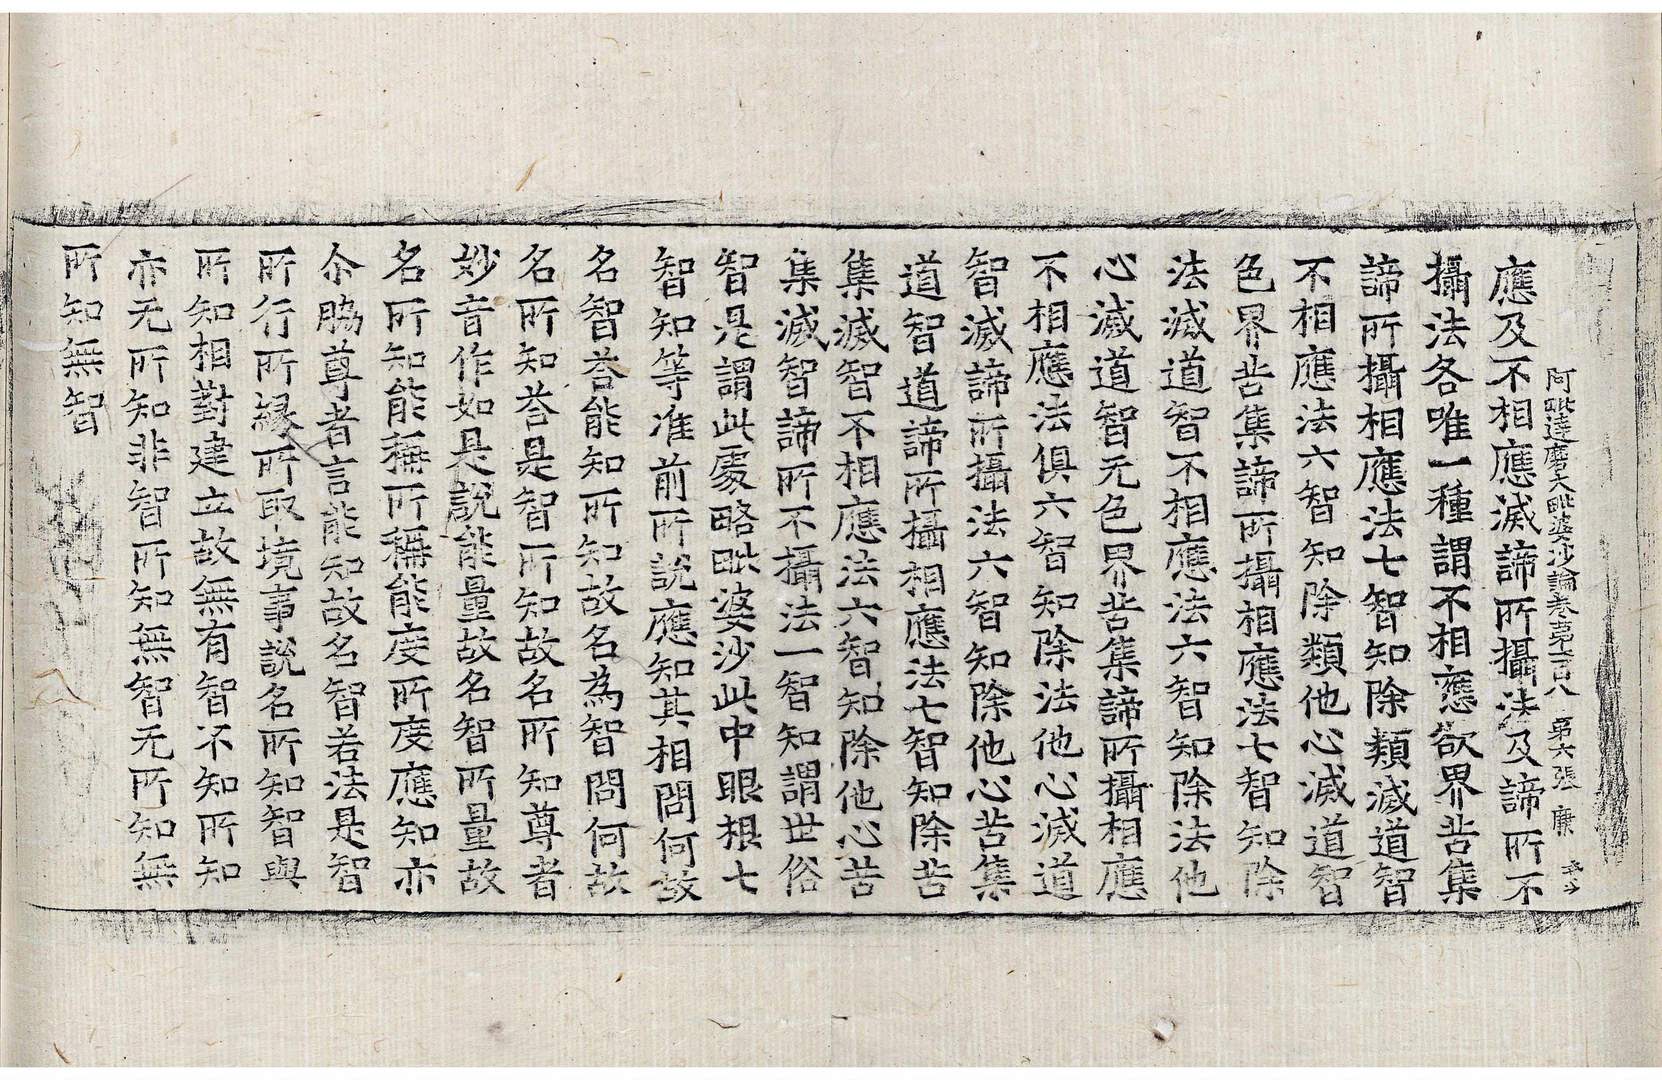 阿毗達磨大毗婆沙論卷第一百八　第六張　庚
應及不相應滅諦所攝法及諦所不
攝法各唯一種謂不相應欲界苦集
諦所攝相應法七智知除類滅道智
不相應法六智知除類他心滅道智
色界苦集諦所攝相應法七智知除
法滅道智不相應法六智知除法他
心滅道智无色界苦集諦所攝相應
不相應法俱六智知除法他心滅道
智滅諦所攝法六智知除他心苦集
道智道諦所攝相應法七智知除苦
集滅智不相應法六智知除他心苦
集滅智諦所不攝法一智知謂世俗
智是謂此處略毗婆沙此中眼根七
智知等准前所說應知其相問何故
名智答能知所知故名為智問何故
名所知答是智所知故名所知尊者
妙音作如是說能量故名智所量故
名所知能稱所稱能度所度應知亦
尒脇尊者言能知故名智若法是智
所行所緣所取境事說名所知智與
所知相對建立故無有智不知所知
亦无所知非智所知無智无所知無
所知無智